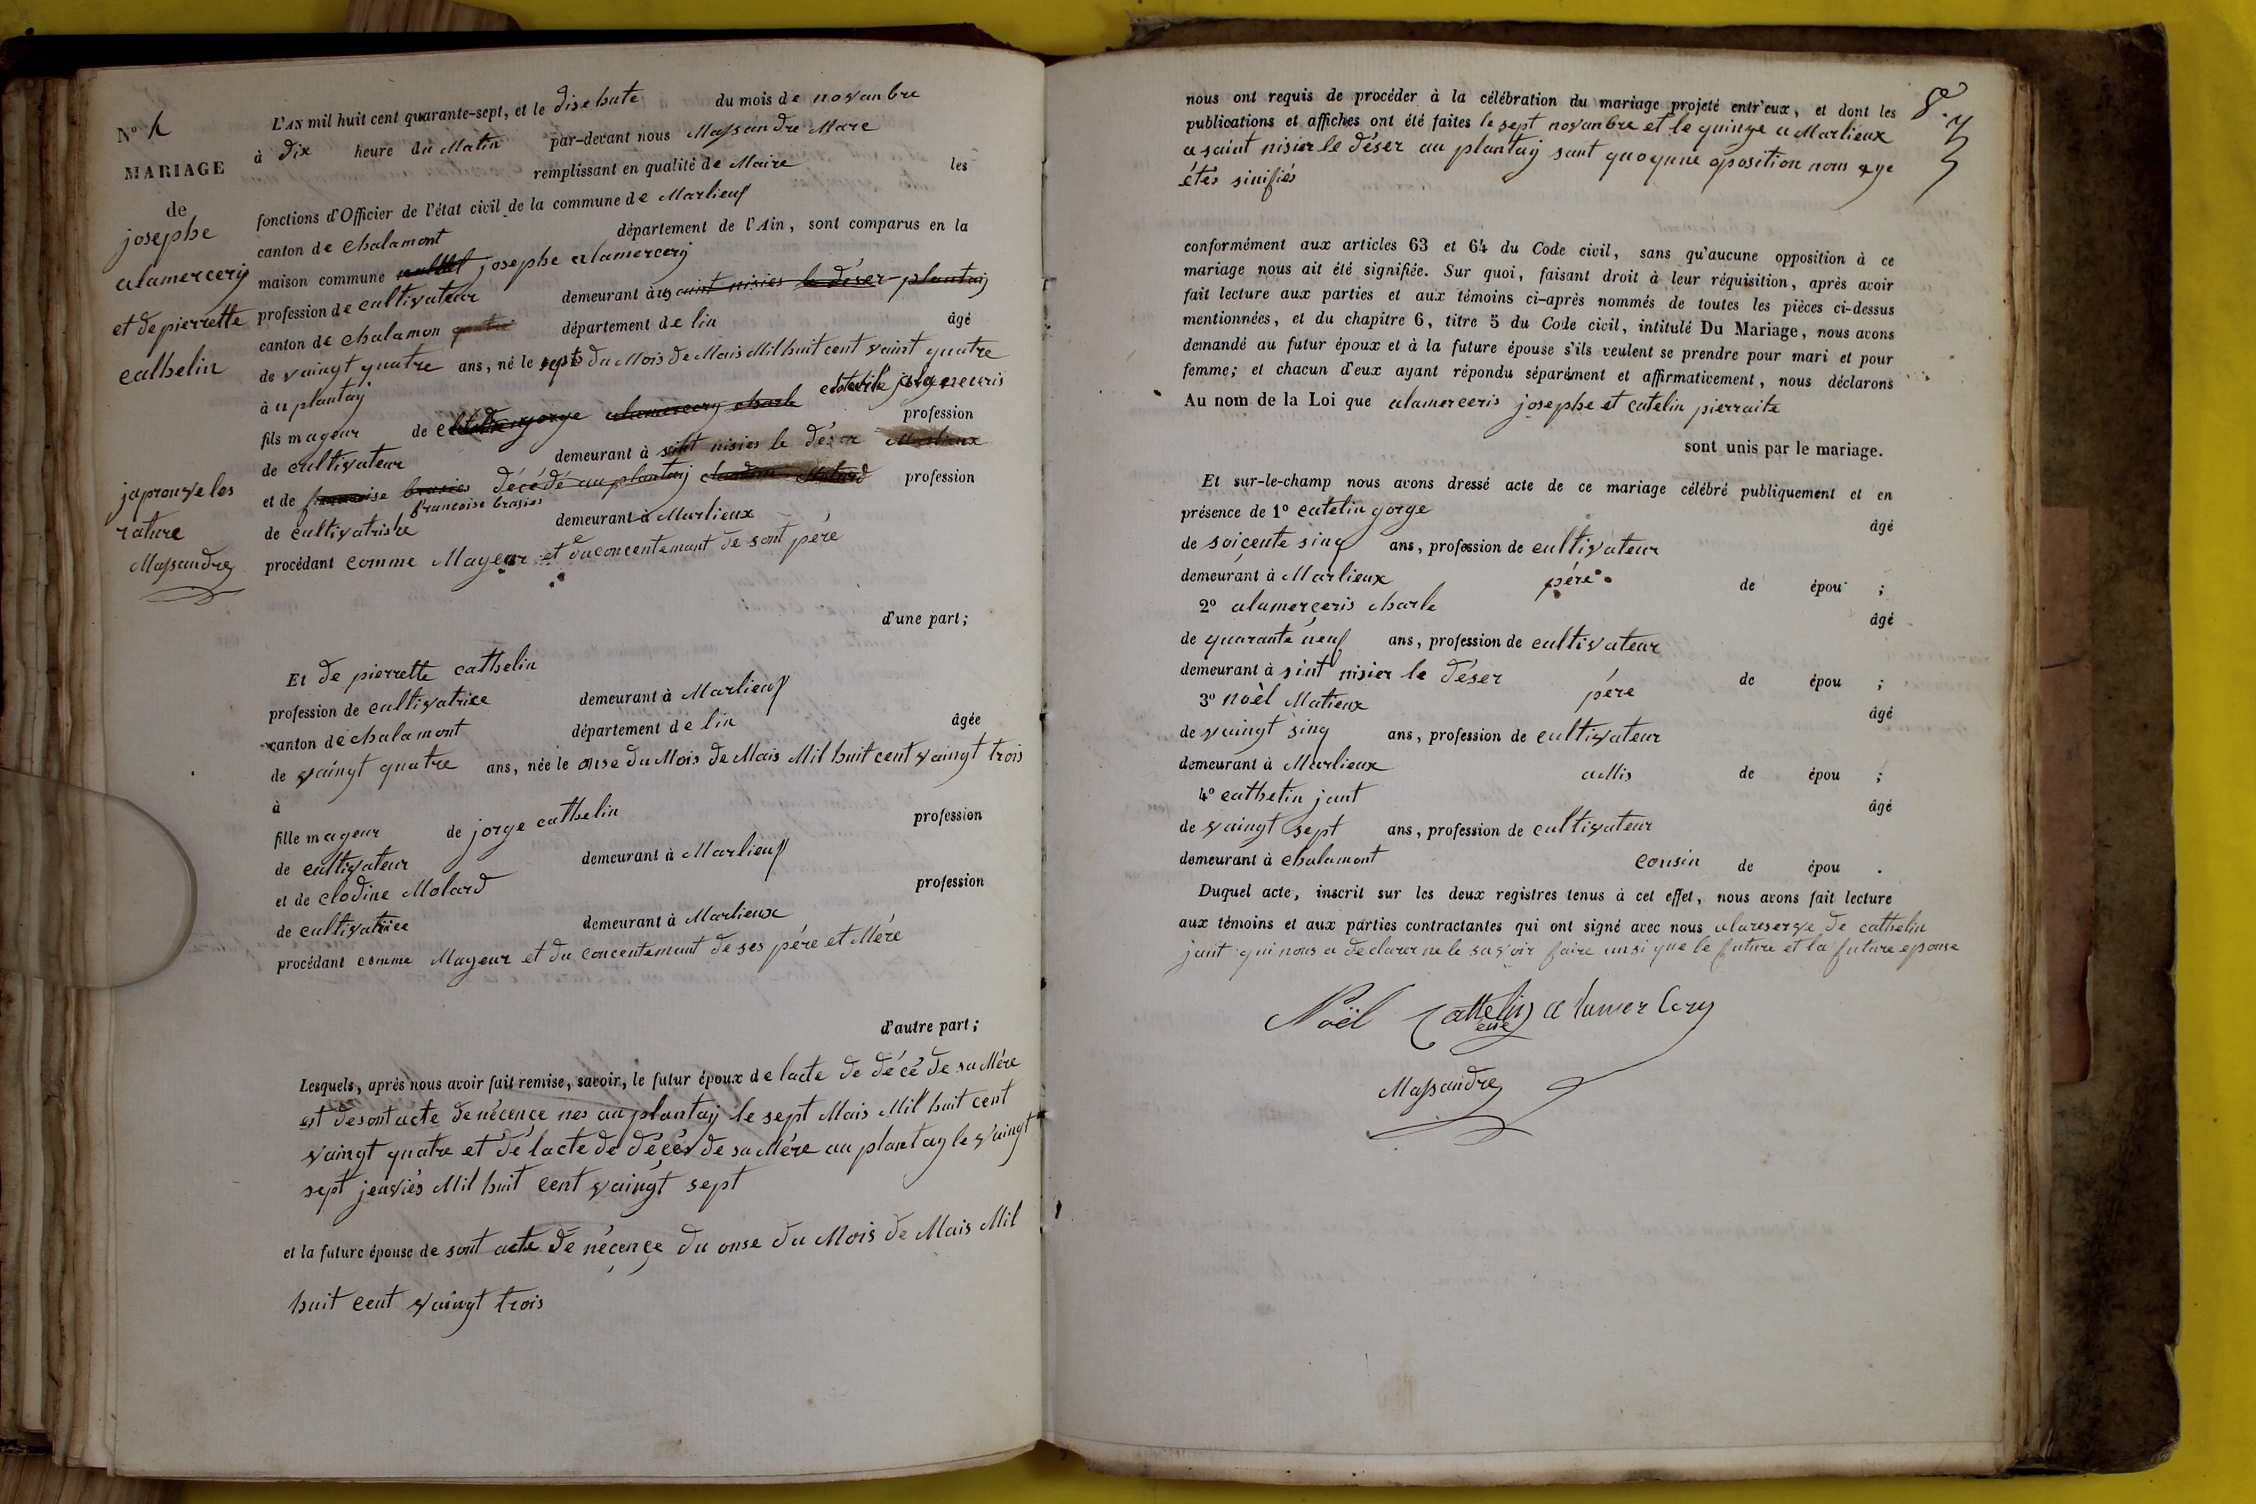 N° 4
MARIAGE
de
josephe
alamercery
et de pierrette
cathelin
japrouve les
rature
Massandre
L'AN mil huit cent quarante-sept, et le dise hute du mois de novanbre
à dix heure du Matin par-devant nous Massandre Mare
remplissant en qualité de Maire les
fonctions d'Officier de l'état civil de la commune de Marlieux
canton de chalamont département de l'Ain, sont comparus en la
maison commune josephe alamercery
profession de cultivateur demeurant à saint nisies le déser plantay
canton de chalamon département de lin âgé
de vaingt quatre ans, né le sept du Mois de Mais Mil huit cent vaint quatre
à u plantay
fils mageur de alamercery charle profession
de cultivateur demeurant à sint nisies le déser Marlieux
et de francoise brasies décédé au plantay profession
francoise brasies
de cultivatrishe demeurant à Marlieux
procédant comme Mageur et du concentemant de sont pére
d'une part;
Et de pierrette cathelin
profession de cultivatrice demeurant à Marlieux
canton de chalamont département de lin âgée
de vaingt quatre ans, née le onse du Mois de Mais Mil huit cent vaingt trois
à
fille mageur de jorge cathelin profession
de cultivateur demeurant à Marlieux
et de clodine Molard profession
de cultivatrice demeurant à Marlieux
procédant comme Mageur et du concentemant de ses pére et Mére
d'autre part;
Lesquels, après nous avoir fait remise, savoir, le futur époux de lacte de décé de sa Mére
est de sont acte de nécençe nes au plantay le sept Mais Mil huit cent
vaingt quatre et de lacte de décés de sa Mére au plantay le vaingt
sept jenviés Mil huit cent vaingt sept
et la future épouse de sont acte de nécençe du onse du Mois de Mais Mil
huit cent vaingt trois
nous ont requis de procéder à la célébration du mariage projeté entr'eux, et dont les
publications et affiches ont été faites le sept novanbre et le quinze a Marlieux
a saint nisier le déser au plantay sant quoqune oposition nous aye
étés sinifiés
conformément aux articles 63 et 64 du Code civil, sans qu'aucune opposition à ce
mariage nous ait été signifiée. Sur quoi, faisant droit à leur réquisition, après avoir
fait lecture aux parties et aux témoins ci-après nommés de toutes les pièces ci-dessus
mentionnées, et du chapitre 6, titre 5 du Code civil, intitulé Du Mariage, nous avons
demandé au futur époux et à la future épouse s'ils veulent se prendre pour mari et pour
femme; et chacun d'eux ayant répondu séparément et affirmativement, nous déclarons
Au nom de la Loi que alamerceris josephe et catelin pierraite
sont unis par le mariage.
Et sur-le-champ nous avons dressé acte de ce mariage célébré publiquement et en
présence de 1° catelin gorge âgé
de soiçente sinq ans, profession de cultivateur
demeurant à Marlieux pére de épou ;
2° alamerçeris charle âgé
de quarante neuf ans, profession de cultivateur
demeurant à sint nisier le déser pére de épou ;
3° noèl Matieux âgé
de vaingt sinq ans, profession de cultivateur
demeurant à Marlieux aMis de épou ;
4° cathetin jant âgé
de vaingt sept ans, profession de cultivateur
demeurant à chalamont cousin de épou .
Duquel acte, inscrit sur les deux registres tenus à cet effet, nous avons fait lecture
aux témoins et aux parties contractantes qui ont signé avec nous alareserve de cathelin
jant qui nous a declarer ne le savoir faire unsi que le future et la future epouse
Noël Cattelin alamercery
Massandre